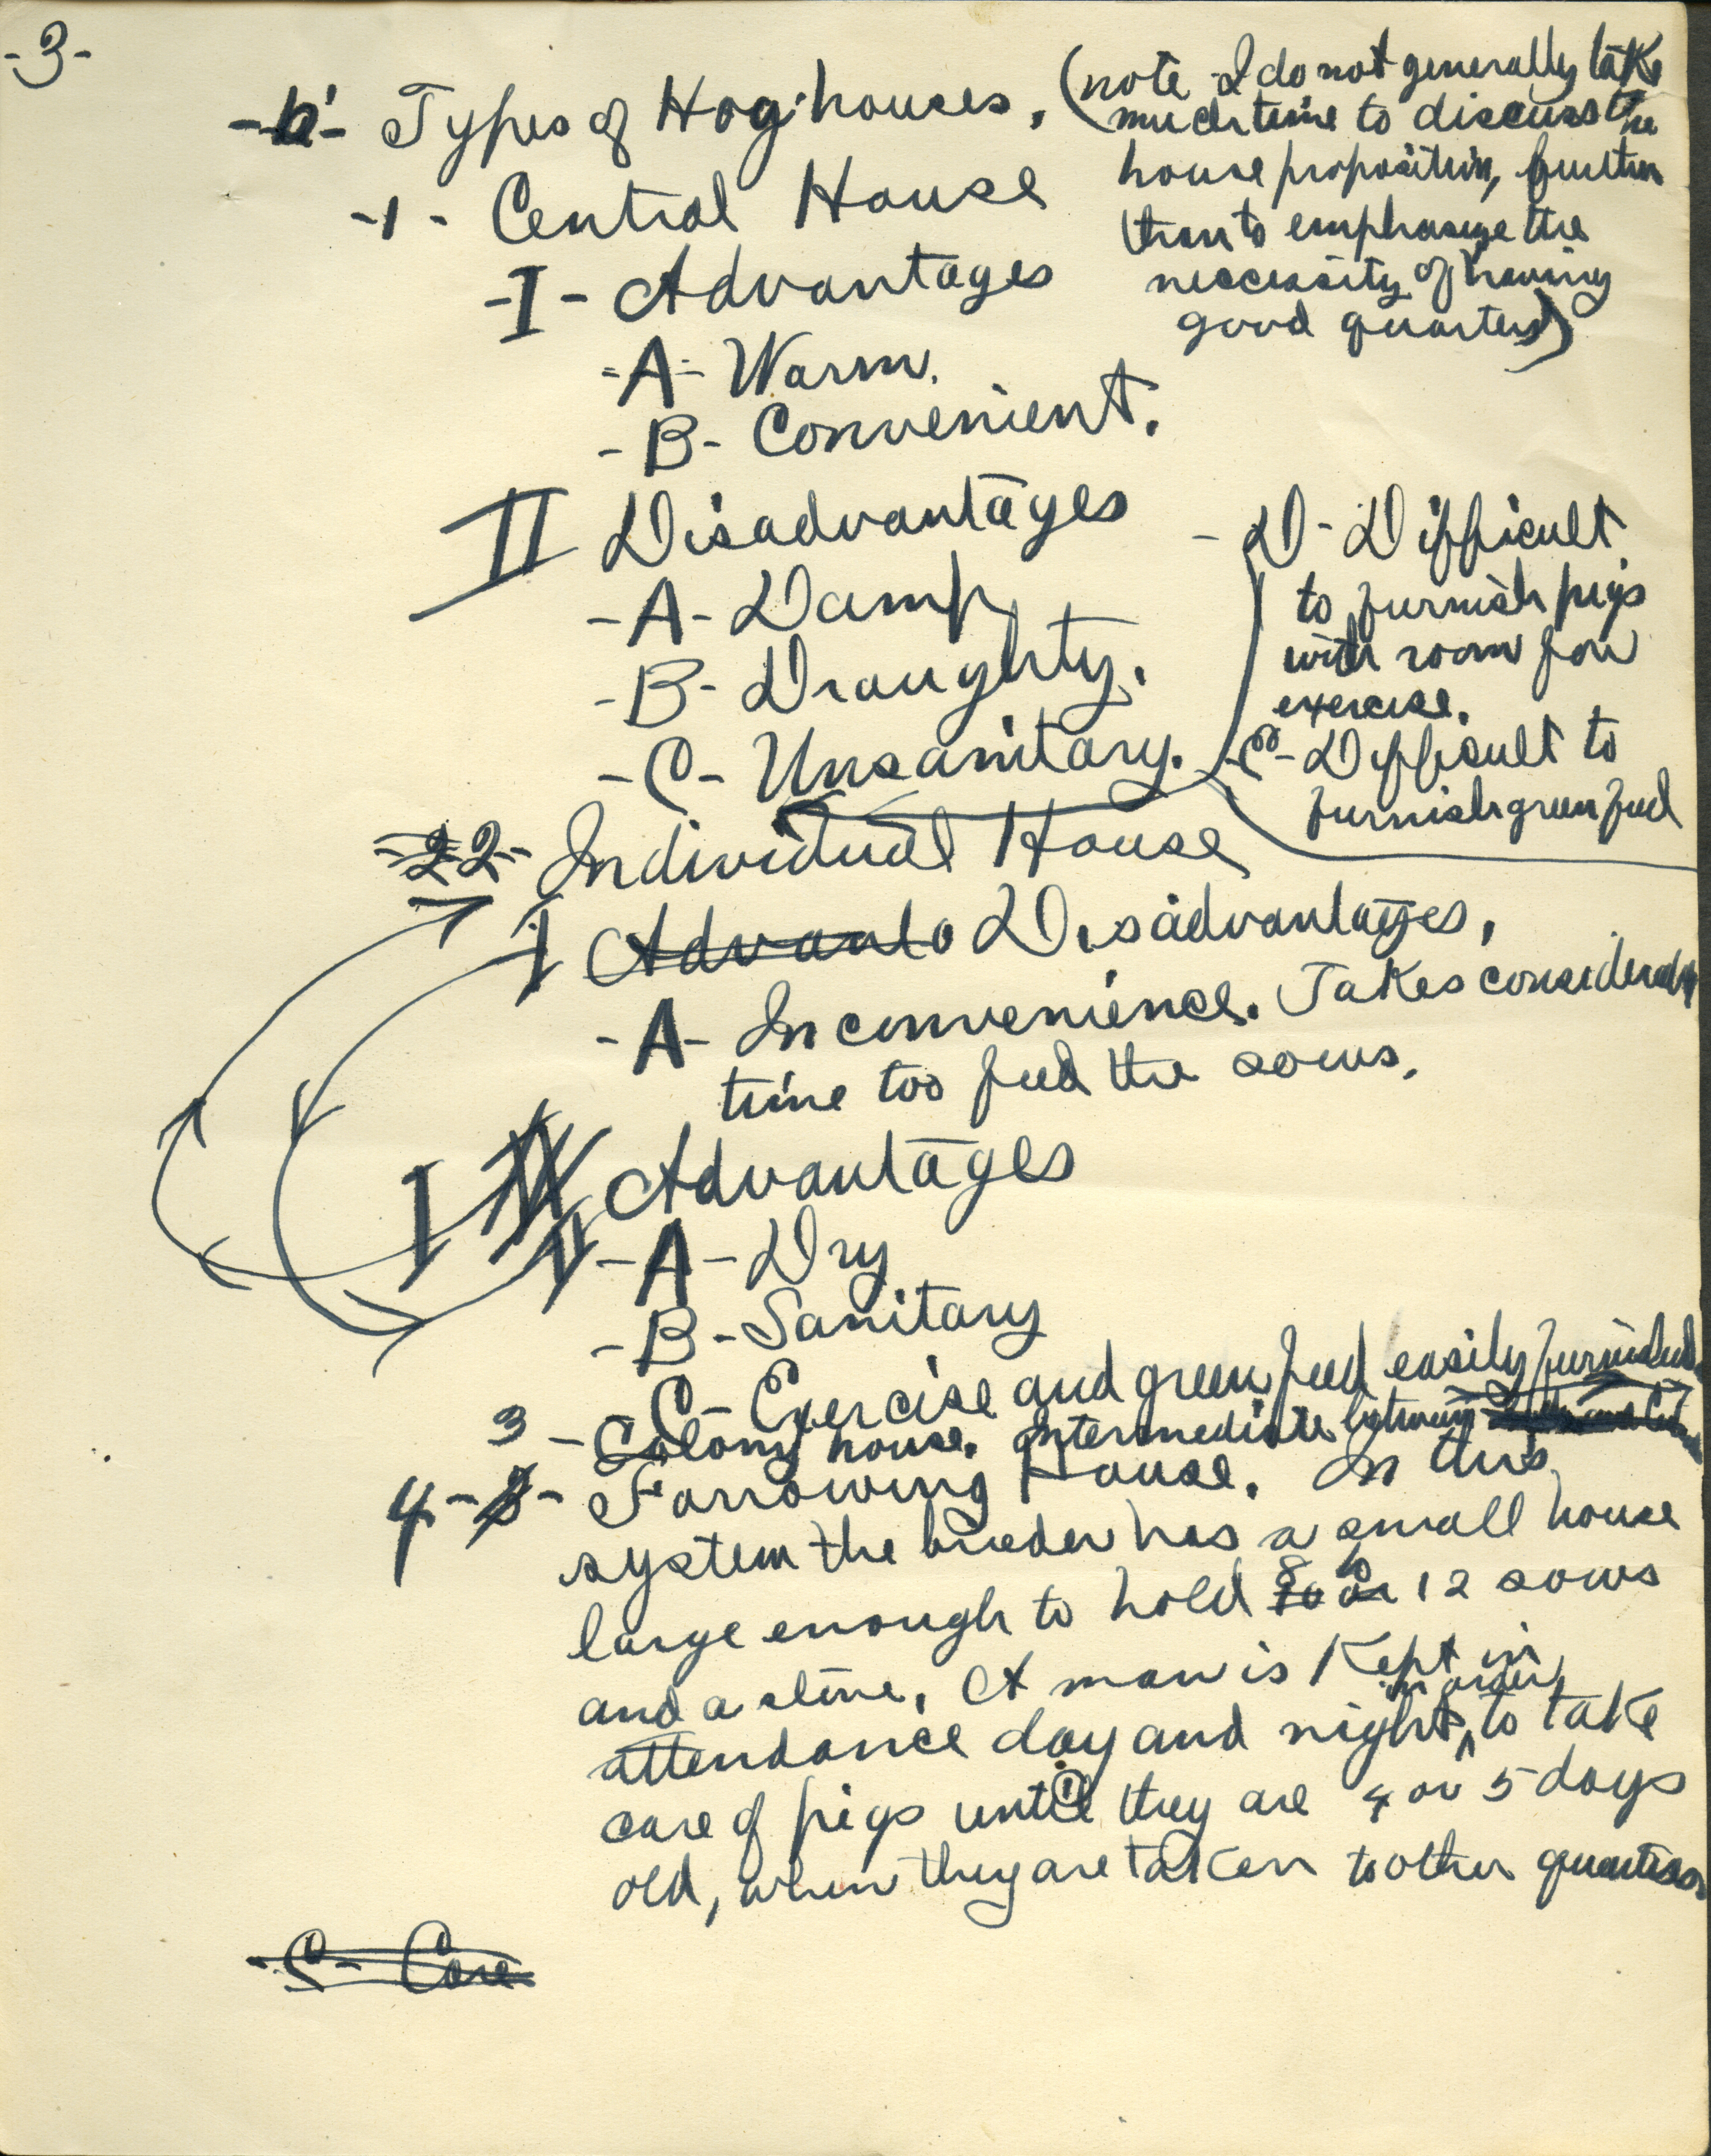 -3-
-b- Types of Hog houses. (note I do not generally take
much time to discuss the
house proposition, further
than to emphasize the
neccessity of having
good quarters)
-1- Central House
-I- Advantages
-A- Warm.
-B- Convenient.
II Disadvantages
-A- Damp
-B- Draughty.
-C- Unsanitary.
-D- Difficult
to furnish pigs
with room for
exercise.
-E- Difficult to
furnish green feed
-2 2- Individual House
I Advanta Disadvantages.
-A- Inconvenience. Takes considerable
time too feed the sows.
I II Advantages
-A- Dry
-B- Sanitary
-C- Exercise and green feed easily furnished
3 - Colony house. Intermediate between
4-3- Farrowing House. In this
system the breeder has a small house
large enough to hold 8 to 10 or 12 sows
and a stove. A man is kept in
attendance day and night, in order to take
care of pigs until they are 4 or 5 days
old, when they are taken to other quarters
-C- Care